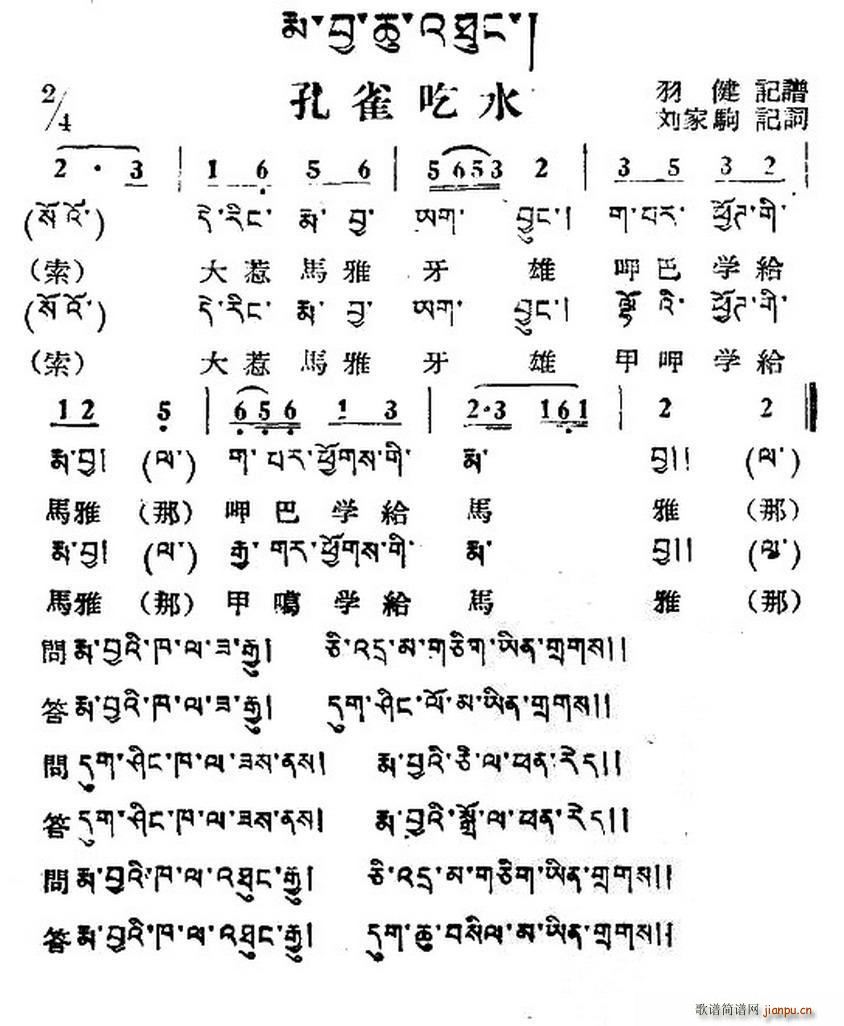 རྨ་བྱ་ཆུ་འཐུང་།
2/4 孔雀吃水 羽健記譜
刘家駒 記詞
2 · 3 | 1 6 5 6 | 5 6 5 3 2 | 3 5 3 2 |
(སོ་འོ་) དེ་རིང་ རྨ་ བྱ་ ཡག་ བྱུང་། ག་པར་ ཕྱོཊ་གི་
(索) 大惹馬雅牙 雄 呷巴学給
(སོ་འོ་) དེ་རིང་ རྨ་ བྱ་ ཡག་ བྱུང་། ཕྱོཊ་གི་
(索) 大惹馬雅牙 雄 甲呷学給
1 2 5 | 6 5 6 1 3 | 2 · 3 1 6 1 | 2 2
རྨ་བྱ། (ལ་) ག་ པར་ཕྱོགས་གི་ རྨ་ བྱ།། (ལ་)
馬雅 (那) 呷巴学給 馬 雅 (那)
རྨ་བྱ། (ལ་) རྒྱ་ གར་ཕྱོགས་གི་ རྨ་ བྱ།། (ལ་)
馬雅 (那) 甲噶学給 馬 雅 (那)
問 རྨ་བྱའི་ཁ་ལ་ཟ་རྒྱུ། ཅི་འདྲ་མ་གཅིག་ཡིན་གྲགས།།
答 རྨ་བྱའི་ཁ་ལ་ཟ་རྒྱུ། དུག་ཤིང་ལོ་མ་ཡིན་གྲགས།།
問 དུག་ཤིང་ཁ་ལ་ཟས་ནས། རྨ་བྱའི་ཅི་ལ་ཕན་རེད།།
答 དུག་ཤིང་ཁ་ལ་ཟས་ནས། རྨ་བྱའི་སྒྲོ་ལ་ཕན་རེད།།
問 རྨ་བྱའི་ཁ་ལ་འཐུང་རྒྱུ། ཅི་འདྲ་མ་གཅིག་ཡིན་གྲགས།།
答 རྨ་བྱའི་ཁ་ལ་འཐུང་རྒྱུ། དུག་ཆུ་བསིལ་མ་ཡིན་གྲགས།།
歌谱简谱网 jianpu.cn